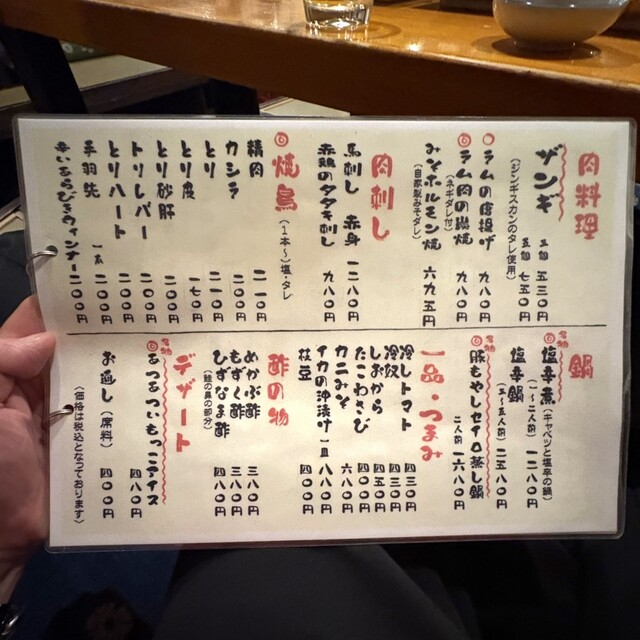 肉料理
ザンギ 三個 五三〇円
五個 七五〇円
(ジンギスカンのタレ使用)
ラムの唐揚げ 九八〇円
ラム肉の炭焼 九八〇円
(ネギダレ付)
みそホルモン焼 六九五円
(自家製みそダレ)
肉刺し
馬刺し 赤身 一二八〇円
赤鶏のタタキ刺し 九八〇円
焼鳥 (1本〜)塩・タレ
精肉 二一〇円
カシラ 二〇〇円
とり 二一〇円
とり皮 一七〇円
とり砂肝 二〇〇円
トリレバー 二〇〇円
とりハート 二〇〇円
手羽先 一本 二〇〇円
辛いあらびきウィンナー 二〇〇円
鍋
名物 塩辛煮 (キャベツと塩辛の鍋)
(一〜二人前) 一二八〇円
塩辛鍋
(三〜五人前) 二五八〇円
名物 豚もやしセイロ蒸し鍋
二人前 一六八〇円
一品・つまみ
冷しトマト 四三〇円
冷奴 四三〇円
しおから 四五〇円
たこわさび 四〇〇円
カニみそ 六八〇円
イカの沖漬け 一皿 八八〇円
枝豆 四〇〇円
酢の物
めかぶ酢 三八〇円
もずく酢 三八〇円
ひずなます 四八〇円
(鮭の鼻の部分)
デザート
名物 るつるついもっこアイス 四八〇円
お通し (席料) 四〇〇円
(価格は税込となっております)